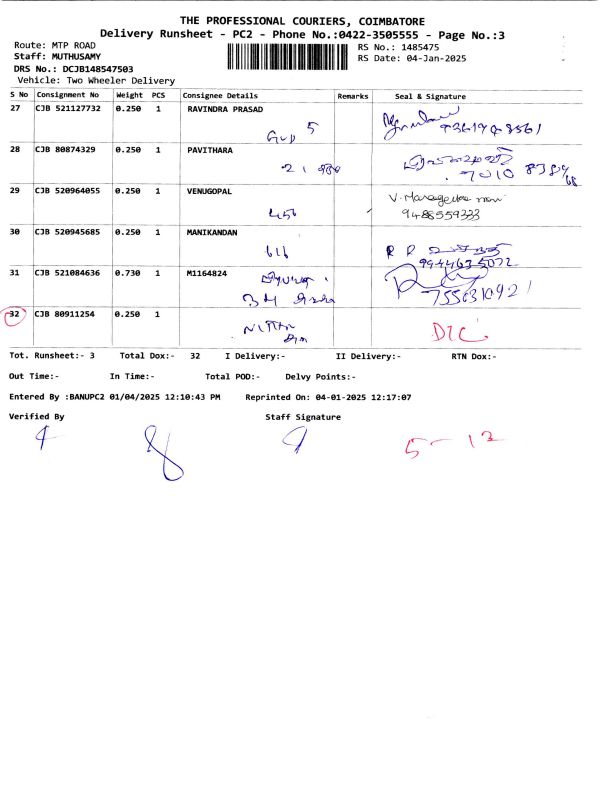 THE PROFESSIONAL COURIERS, COIMBATORE
Delivery Runsheet - PC2 - Phone No.:0422-3505555 - Page No.:3
Route: MTP ROAD
RS No.: 1485475
Staff: MUTHUSAMY
RS Date: 04-Jan-2025
DRS No.: DCJB148547503
Vehicle: Two Wheeler Delivery
S No Consignment No Weight PCS Consignee Details Remarks Seal & Signature
27 CJB 521127732 0.250 1 RAVINDRA PRASAD
5
28 CJB 80874329 0.250 1 PAVITHARA
29 CJB 520964055 0.250 1 VENUGOPAL
456
9488559333
30 CJB 520945685 0.250 1 MANIKANDAN
616
9944635072
31 CJB 521084636 0.730 1 M1164824
7550310921
32 CJB 80911254 0.250 1
Tot. Runsheet:- 3 Total Dox:- 32 I Delivery:- II Delivery:- RTN Dox:-
Out Time:- In Time:- Total POD:- Delvy Points:-
Entered By :BANUPC2 01/04/2025 12:10:43 PM Reprinted On: 04-01-2025 12:17:07
Verified By Staff Signature
5-12